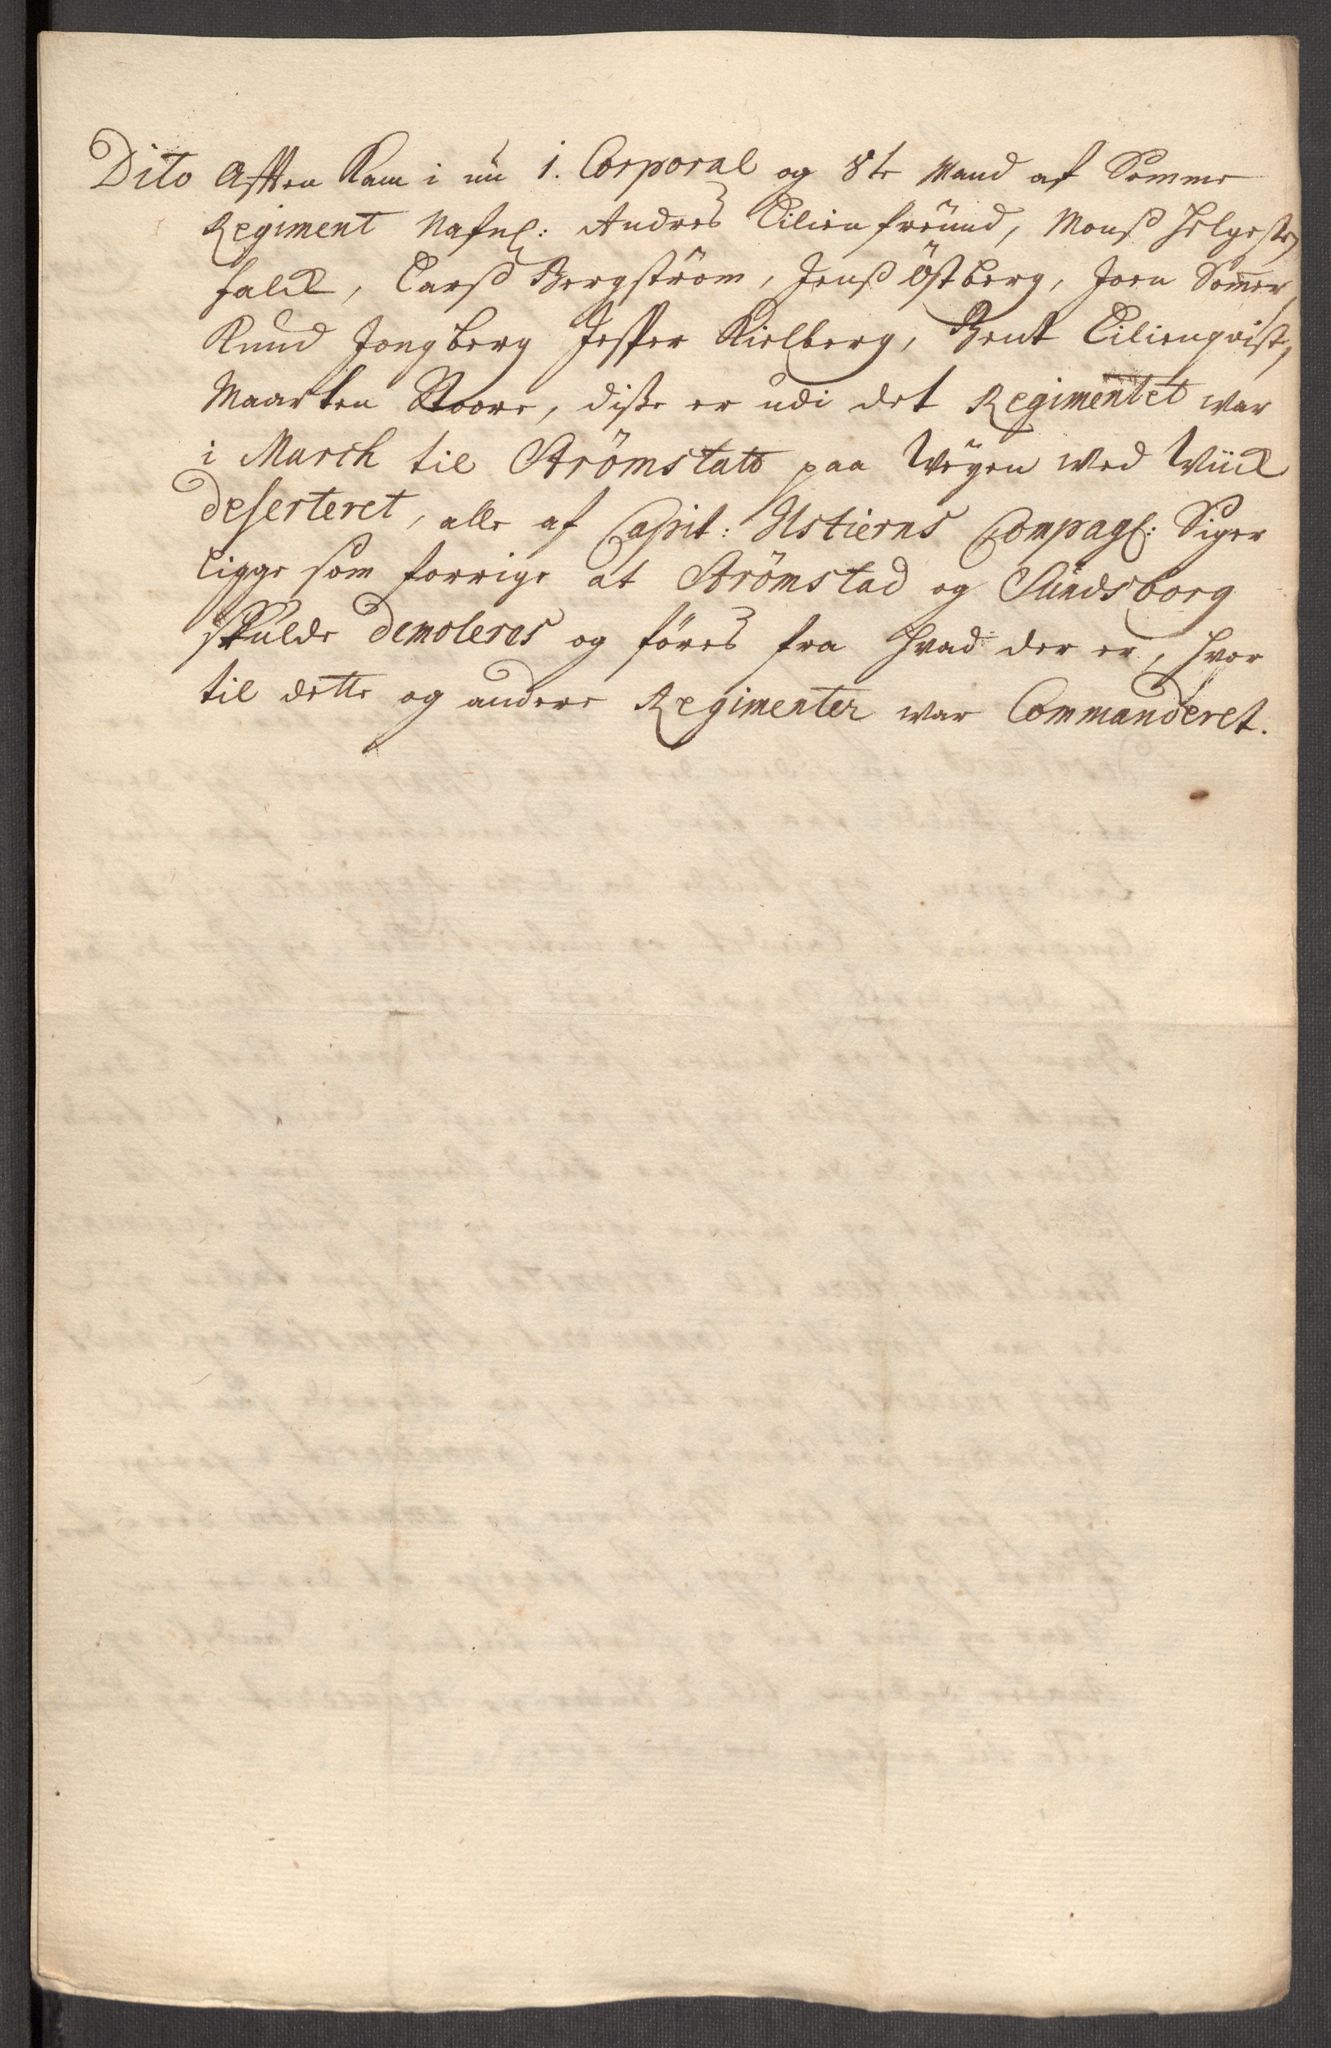 Dito Afften Kam i nu 1. Corporal og 8te Mand af Samme
Regiment Nafnl: Andres Lilienfreünd, Monsß Helgesten,
falck, Larsß Bergström, Jensß Östberg, Joen Somer,
Knud Jongberg Jesper Kielberg, Bent Lilienqvist,
Maarten Stoore, disße er udi det Regimentet war
i March til Strömstatt paa Weyen wed Wiick
deserteret, alle af Capit: Ustierns Compagl: Siger
ligge som forrige at Strömstad og Sündsborg
skulde demoleres og föres fra hvad der er, hvor
til dette og andere Regimenter war Commanderet.